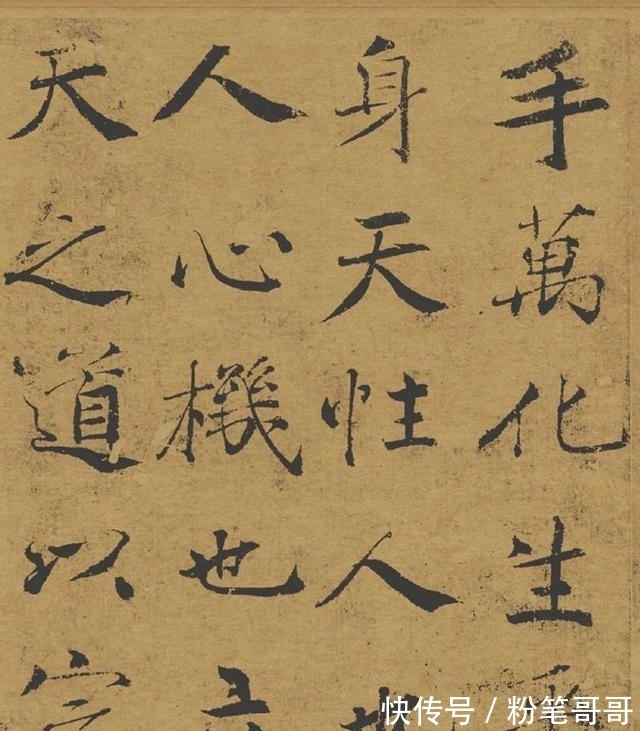 手萬化生
身天性人
人心機也立
天之道以定
快传号 / 粉笔哥哥